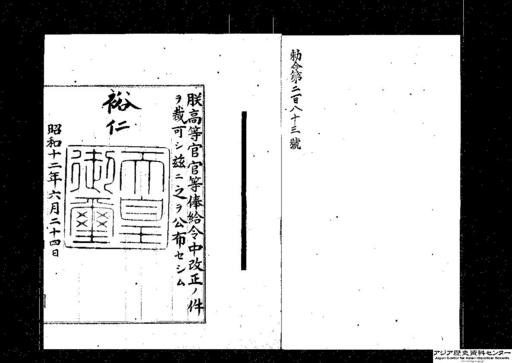 勅令第二百八十三號
朕高等官官等俸給令中改正ノ件
ヲ裁可シ茲ニ之ヲ公布セシム
裕仁
天皇御璽
昭和十二年六月二十四日
アジア歴史資料センター
Japan Center for Asian Historical Records